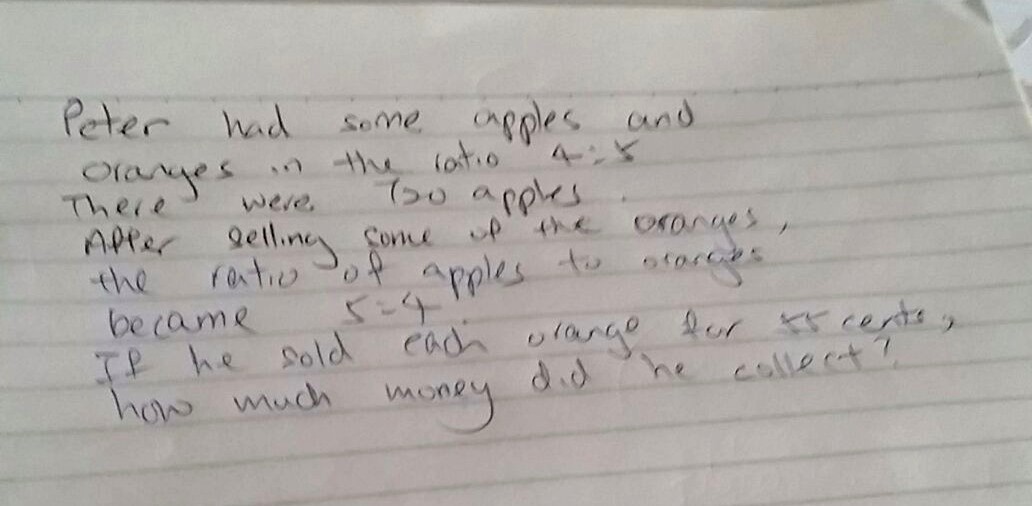 Peter had some apples and
oranges in the ratio 4:5
There were 720 apples.
After selling some of the oranges,
the ratio of apples to oranges
became 5:4.
If he sold each orange for 55 cents,
how much money did he collect?